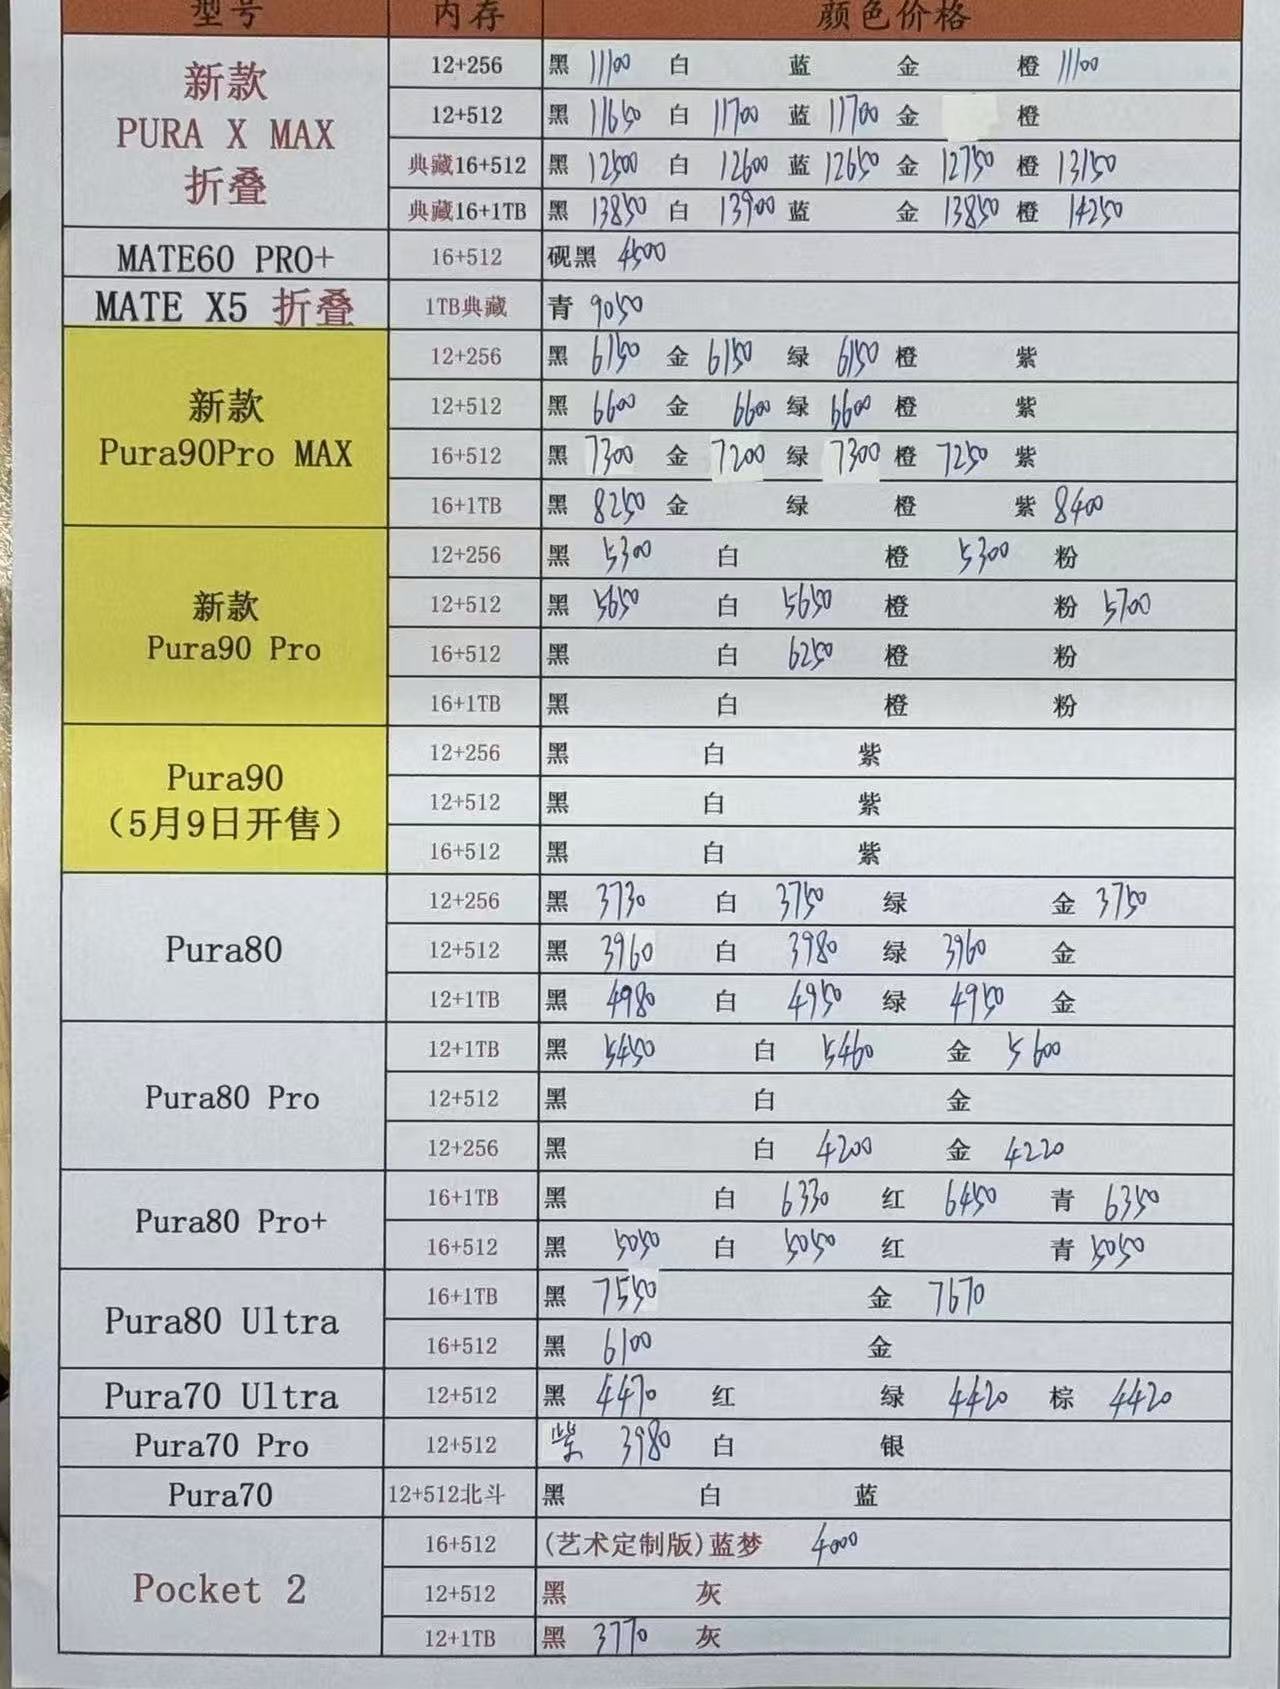 型号 内存 颜色价格
新款 PURA X MAX 折叠
12+256 黑 11100 白 蓝 金 橙 11100
12+512 黑 11650 白 11700 蓝 11700 金 橙
典藏16+512 黑 12500 白 12600 蓝 12650 金 12750 橙 13150
典藏16+1TB 黑 13850 白 13900 蓝 金 13850 橙 14250
MATE60 PRO+ 16+512 砚黑 4500
MATE X5 折叠 1TB典藏 青 9050
新款 Pura90Pro MAX
12+256 黑 6150 金 6150 绿 6150 橙 紫
12+512 黑 6600 金 6600 绿 6600 橙 紫
16+512 黑 7300 金 7200 绿 7300 橙 7250 紫
16+1TB 黑 8250 金 绿 橙 紫 8400
新款 Pura90 Pro
12+256 黑 5300 白 橙 5300 粉
12+512 黑 5650 白 5650 橙 粉 5700
16+512 黑 白 6250 橙 粉
16+1TB 黑 白 橙 粉
Pura90 (5月9日开售)
12+256 黑 白 紫
12+512 黑 白 紫
16+512 黑 白 紫
Pura80
12+256 黑 3730 白 3750 绿 金 3750
12+512 黑 3960 白 3980 绿 3960 金
12+1TB 黑 4980 白 4950 绿 4950 金
Pura80 Pro
12+1TB 黑 5450 白 5460 金 5600
12+512 黑 白 金
12+256 黑 白 4200 金 4220
Pura80 Pro+
16+1TB 黑 白 6330 红 6450 青 6350
16+512 黑 5050 白 5050 红 青 5050
Pura80 Ultra
16+1TB 黑 7550 金 7670
16+512 黑 6100 金
Pura70 Ultra 12+512 黑 4470 红 绿 4420 棕 4420
Pura70 Pro 12+512 紫 3980 白 银
Pura70 12+512北斗 黑 白 蓝
Pocket 2
16+512 (艺术定制版)蓝梦 4000
12+512 黑 灰
12+1TB 黑 3770 灰